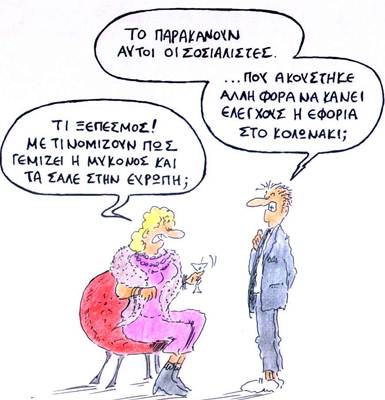 ΤΟ ΠΑΡΑΚΑΝΟΥΝ
ΑΥΤΟΙ ΟΙ ΣΟΣΙΑΛΙΣΤΕΣ.
...ΠΟΥ ΑΚΟΥΣΤΗΚΕ
ΑΛΛΗ ΦΟΡΑ ΝΑ ΚΑΝΕΙ
ΕΛΕΓΧΟΥΣ Η ΕΦΟΡΙΑ
ΣΤΟ ΚΟΛΩΝΑΚΙ;
ΤΙ ΞΕΠΕΣΜΟΣ!
ΜΕ ΤΙ ΝΟΜΙΖΟΥΝ ΠΩΣ
ΓΕΜΙΖΕΙ Η ΜΥΚΟΝΟΣ ΚΑΙ
ΤΑ ΣΑΛΕ ΣΤΗΝ ΕΥΡΩΠΗ;